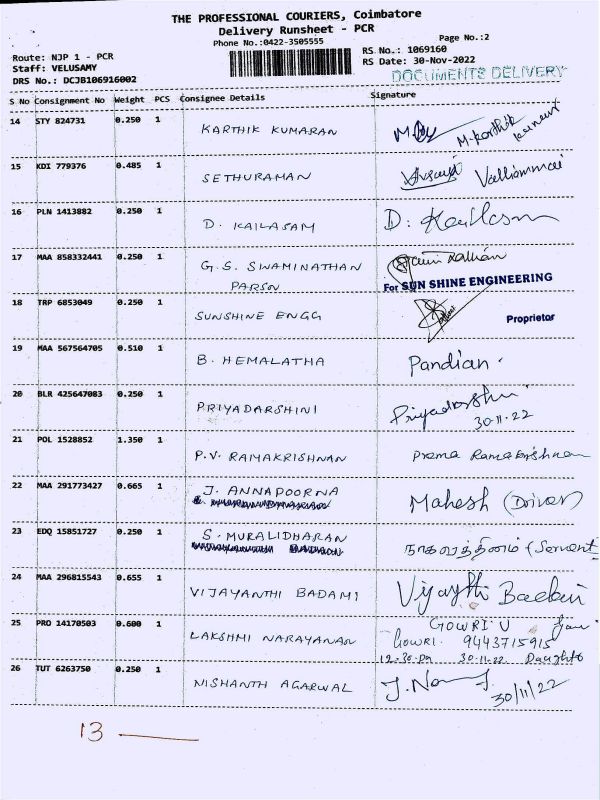 THE PROFESSIONAL COURIERS, Coimbatore
Delivery Runsheet - PCR
Phone No.:0422-3505555
Page No.:2
Route: NJP 1 - PCR
RS No.: 1069160
Staff: VELUSAMY
RS Date: 30-Nov-2022
DRS No.: DCJB106916002
DOCUMENTS DELIVERY
S No Consignment No Weight PCS Consignee Details Signature
14 STY 824731 0.250 1 KARTHIK KUMARAN M. Karthik
15 KDI 779376 0.485 1 SETHURAMAN Valliammai
16 PLN 1413882 0.250 1 D. KAILASAM D. Kailasam
17 MAA 858332441 0.250 1 G.S. SWAMINATHAN
PARSN For SUN SHINE ENGINEERING
18 TRP 6853049 0.250 1 SUNSHINE ENGG Proprietor
19 MAA 567564705 0.510 1 B. HEMALATHA Pandian.
20 BLR 425647083 0.250 1 PRIYADARSHINI Priyadarshini
30.11.22
21 POL 1528852 1.350 1 P.V. RAMAKRISHNAN Prema Ramakrishnan
22 MAA 291773427 0.665 1 J. ANNAPOORNA Mahesh (Driver)
23 EDQ 15851727 0.250 1 S. MURALIDHARAN நாகரத்தினம் (Servent
24 MAA 296815543 0.655 1 VIJAYANTHI BADAMI
25 PRO 14170503 0.600 1 LAKSHMI NARAYANAN GOWRI V
Gowri. 9443715915
12-30.pm 30.11.22 Daughter
26 TUT 6263750 0.250 1 NISHANTH AGARWAL 30/11/22
13